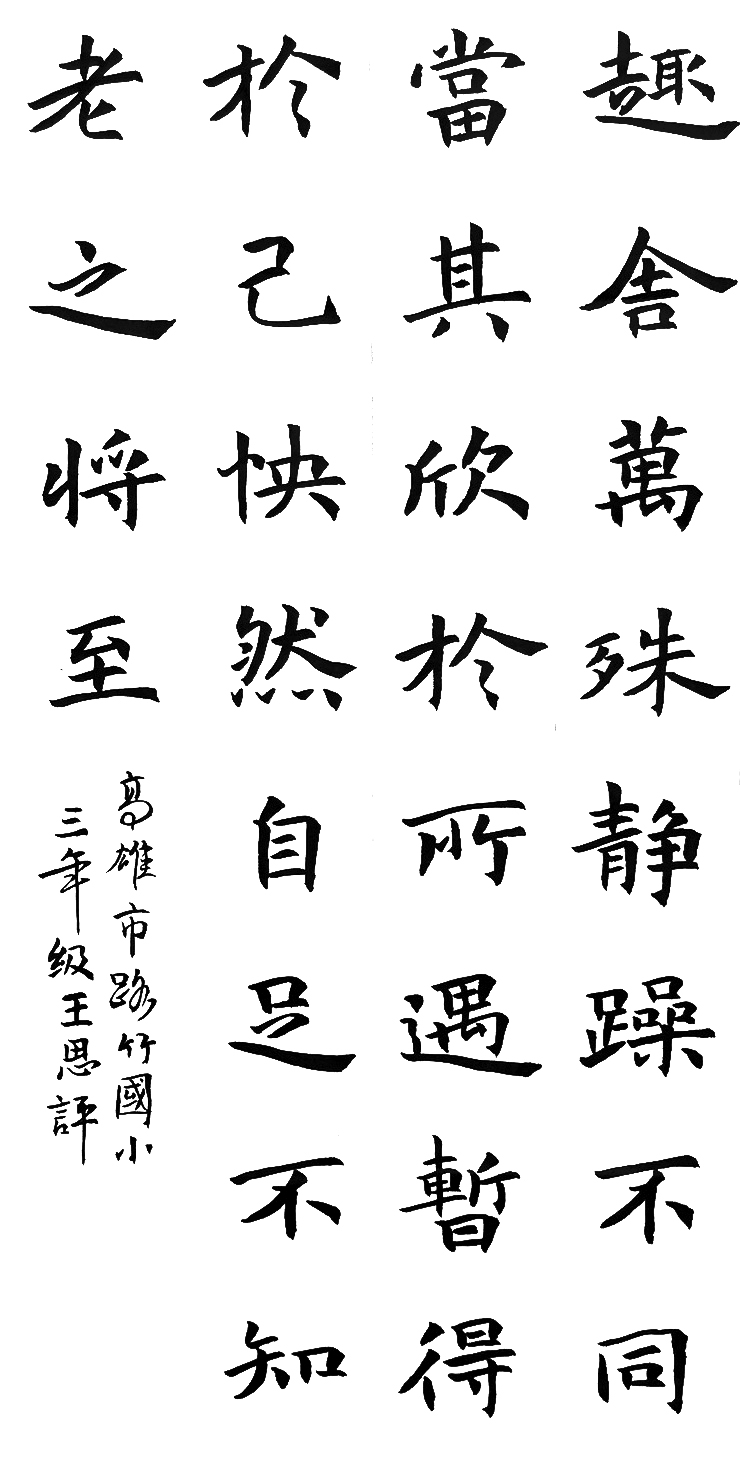 趣舍萬殊静躁不同
當其欣於所遇暫得
於己怏然自足不知
老之将至
高雄市路竹國小
三年级王思評